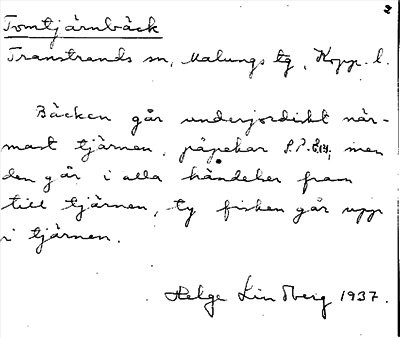 2
Tomtjärnbäck
Transtrands sn, Malungs tg, Kopp. l.
Bäcken går underjordiskt när-
mast tjärnen, påpekar P.P. men
den går i alla händelser fram
till tjärnen, ty fisken går upp
i tjärnen.
Helge Lindberg 1937.